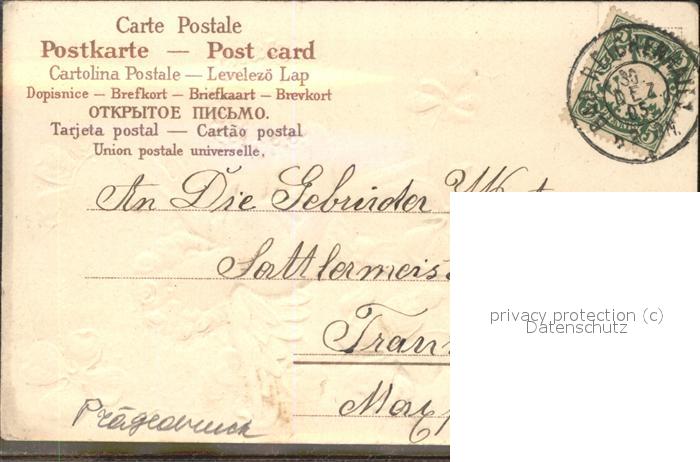 Carte Postale
Postkarte — Post card
Cartolina Postale — Levelezö Lap
Dopisnice — Brefkort — Briefkaart — Brevkort
ОТКРЫТОЕ ПИСЬМО.
Tarjeta postal — Cartão postal
Union postale universelle.
An Die Gebrüder
Sattlermeis
privacy protection (c)
Datenschutz
Prägedruck